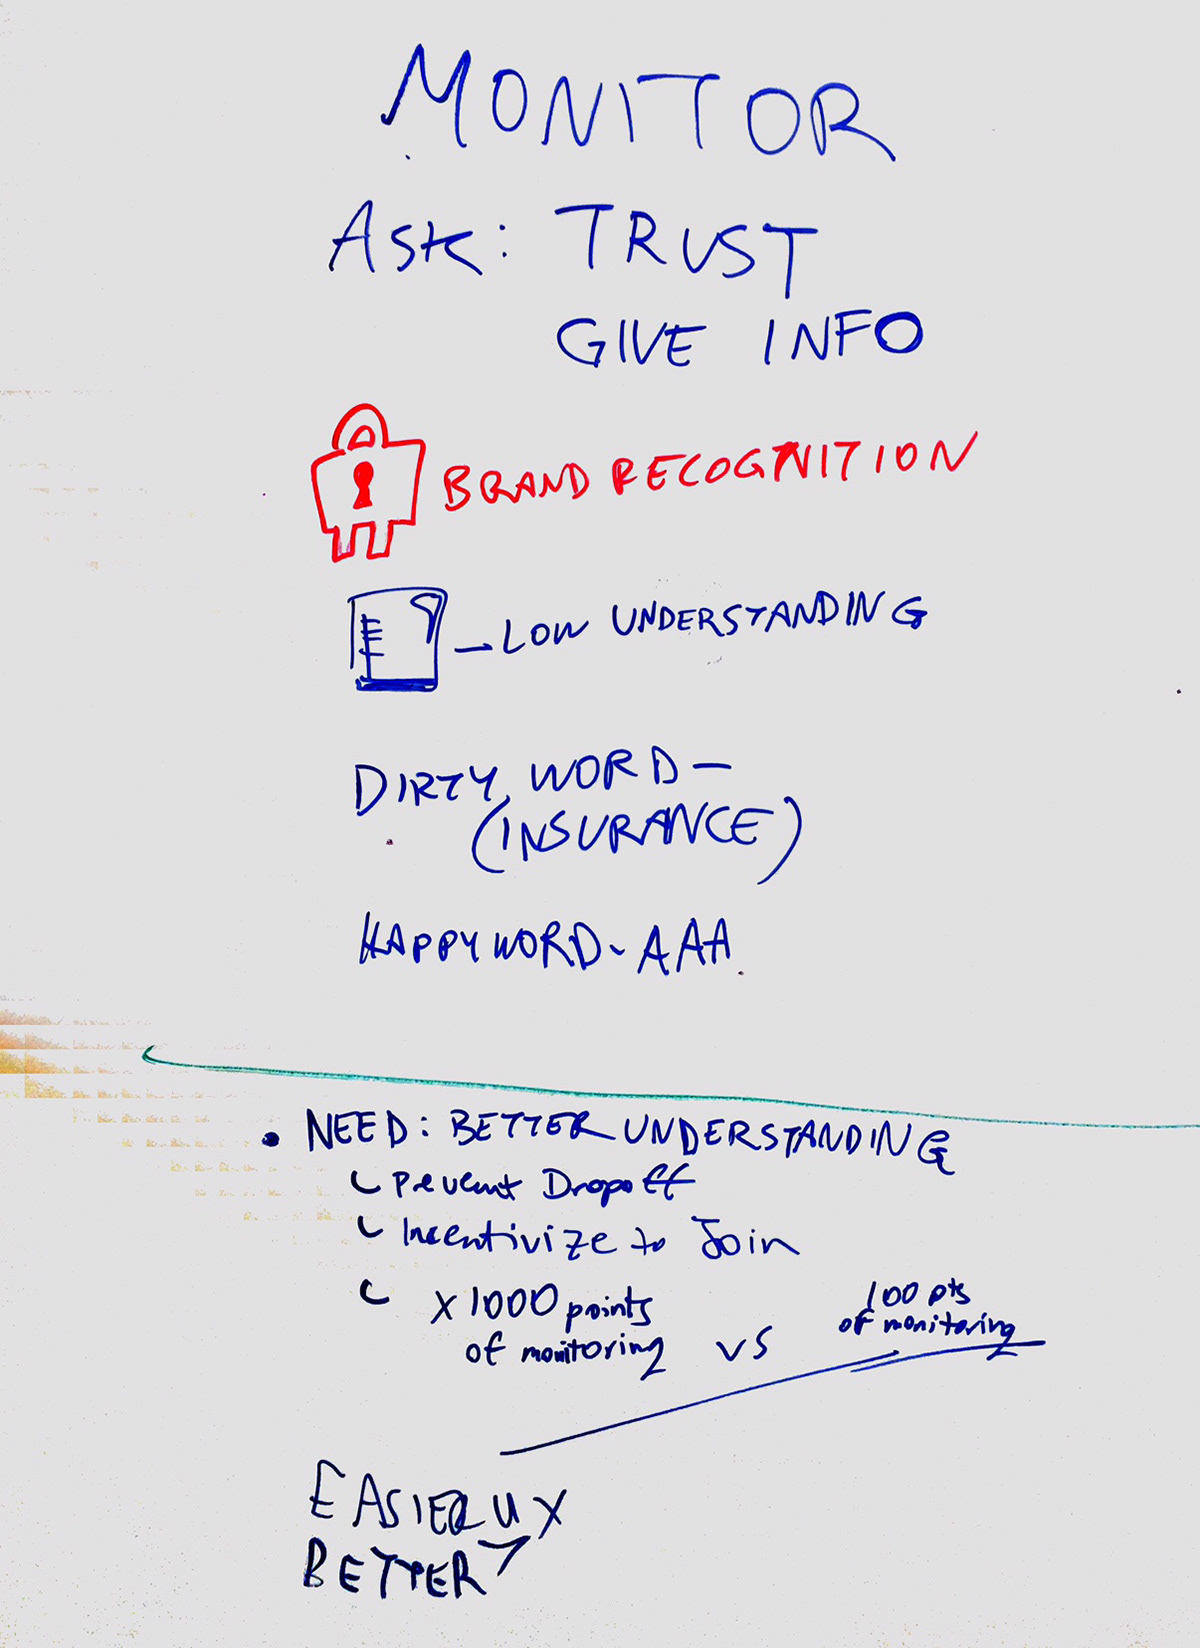 MONITOR
ASK: TRUST
GIVE INFO
BRAND RECOGNITION
– LOW UNDERSTANDING
DIRTY WORD –
(INSURANCE)
HAPPY WORD - AAA
• NEED: BETTER UNDERSTANDING
Prevent Dropoff
Incentivize to Join
x 1000 points
of monitoring vs 100 pts
of monitoring
EASIER UX
BETTER